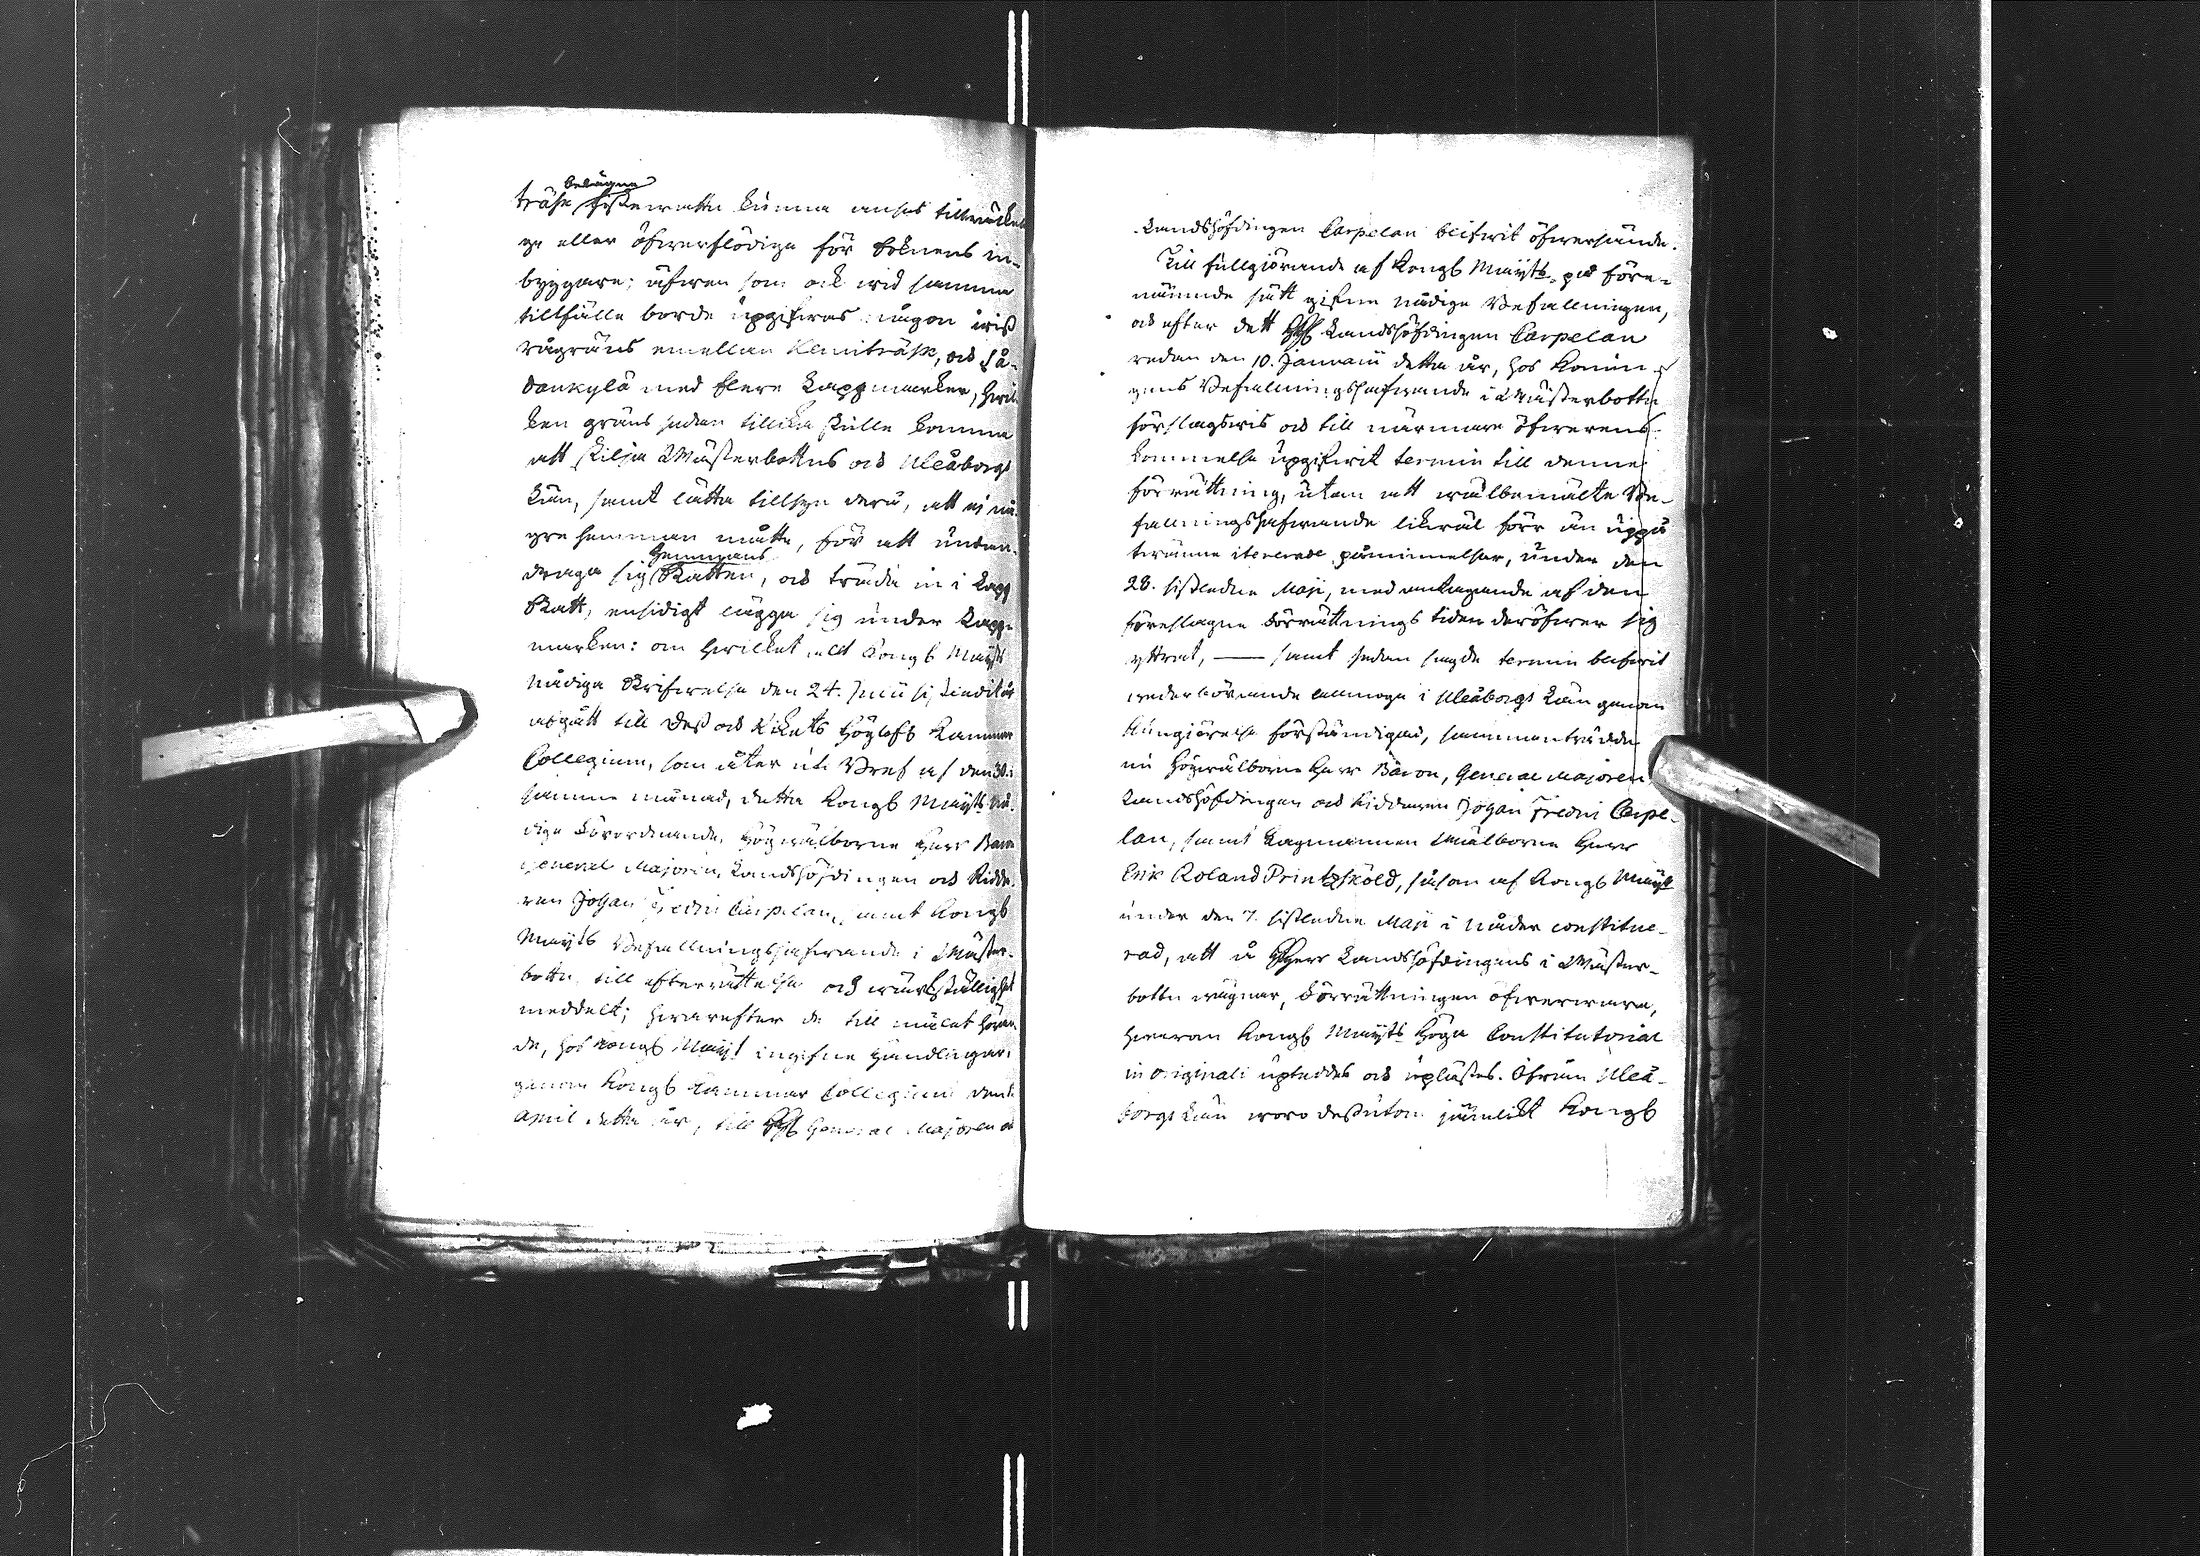 belägne
träsk fiskewattn kunna anses tillräcke-
ge eller öfwerflödige för Soknens in-
byggare; äfwen som ock wid samma
tillfälle borde upgifwas någon wiss
rågräns emellan Kemiträsk, och So-
dankylä med flere Lappmarker, hwil-
ken gräns sedan tillika skulle komma
att skilja Wästerbottns och Uleåborgs
Län, samt lätta tillsyn derå, att ej nå-
gre hemman måtte, för att undan-
Hemmans
draga sig Skatten, och träda in i Lapp
Skatt, ensidigt lägga sig under Lapp-
marken: om hwilket allt Kongl Mayts
nådiga Skrifwelse den 24. Junii
afgått till Dess och Rikets Höglofl Kammar
Collegium, som åter uti Bref af den 30. i
samma månad, detta Kongl Mayts nå-
diga Förordnande, Högwälborne Herr Baron
General Majoren, Landshöfdingen och Ridda-
ren Johan Fredric Carpelan, samt Kongl
Mayts Befallningshafwande i Wäster-
bottn, till efterrättelse och wärkställighet
meddelt; hwarefter de till målet höran-
de, hos Kongl Mayt ingifne Handlingar,
genom Kongl Cammar Collegium den
April detta år, till General Majoren och
Landshöfdingen Carpelan blifwit öfwersände.
Till fullgiörande af Kongl Mayts på före-
nämnde sätt gifne nådige Befallningar,
och efter det Landshöfdingen Carpelan
redan den 10. Januarii detta år, hos Konun-
gens Befallningshafwande i Wästerbottn
förslagswis och till närmare öfwerens-
kommelse upgifwit termin till denne
förrättning, utan att wälbemälte Be-
fallningshafwande likwäl förr än uppå
twänne itererade påminnelser, under den
28. sistledne Maji, med antagande af den
föreslagne Förrättnings tiden deröfwer sig
yttrat, — samt sedan sagde termin blifwit
wederbörande allmoge i Uleåborgs Län genom
Kungiörelse förständigad, sammanträdde
nu Högwälborne Herr Baron, General Majoren
Landshöfdingen och Riddaren Johan Fredric Carpe-
lan, samt Lagmannen Wälborne Herr
Eric Roland Printzsköld, såsom af Kongl Mayt
under den 7. sistledne Maji i nåder constitue-
rad, att å Herr Landshöfdingens i Wäster-
bottn wägnar, Förrättningen öfwerwara,
hwarom Kongl Mayts Höga Constitutorial
in originali upteddes och uplästes. Ifrån Uleå-
borgs Län woro dessutom jämlikt Kongl